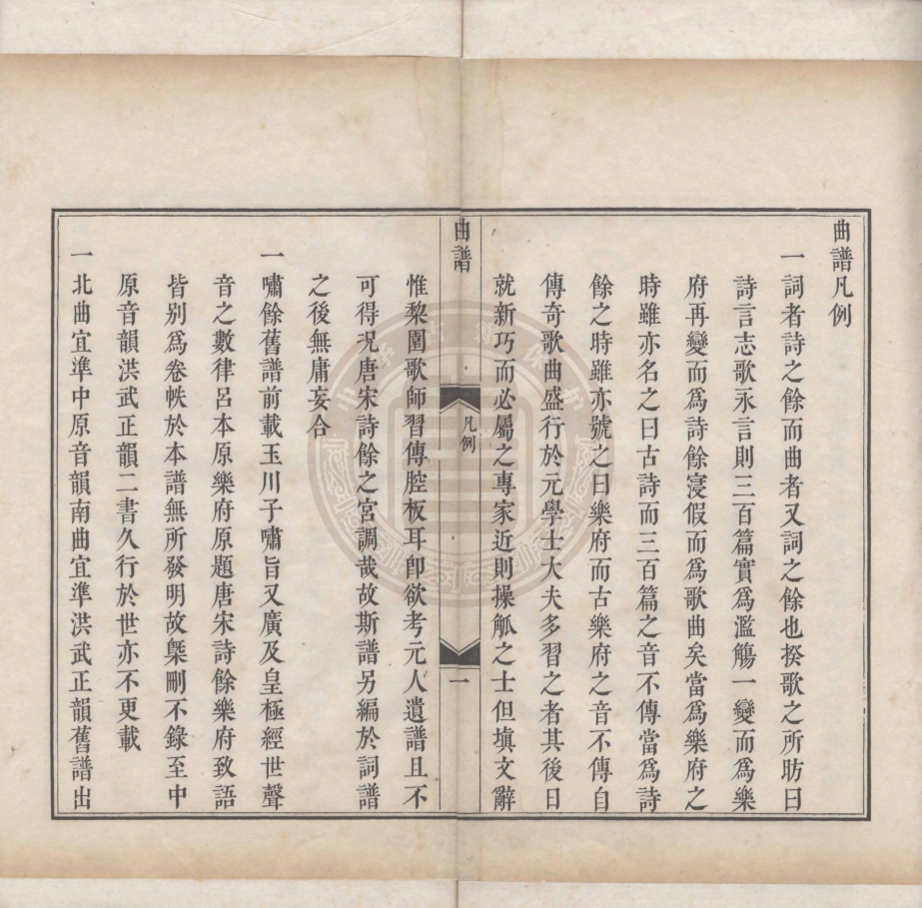 曲譜凡例
一詞者詩之餘而曲者又詞之餘也揆歌之所昉曰
詩言志歌永言則三百篇實爲濫觴一變而爲樂
府再變而爲詩餘寖假而爲歌曲矣當爲樂府之
時雖亦名之曰古詩而三百篇之音不傳當爲詩
餘之時雖亦號之曰樂府而古樂府之音不傳自
傳奇歌曲盛行於元學士大夫多習之者其後日
就新巧而必屬之專家近則操觚之士但填文辭
曲譜
凡例
一
惟棃園歌師習傳腔板耳卽欲考元人遺譜且不
可得况唐宋詩餘之宮調哉故斯譜另編於詞譜
之後無庸妄合
一嘯餘舊譜前載玉川子嘯旨又廣及皇極經世聲
音之數律呂本原樂府原題唐宋詩餘樂府致語
皆别爲卷帙於本譜無所發明故槩刪不錄至中
原音韻洪武正韻二書久行於世亦不更載
一北曲宜準中原音韻南曲宜準洪武正韻舊譜出